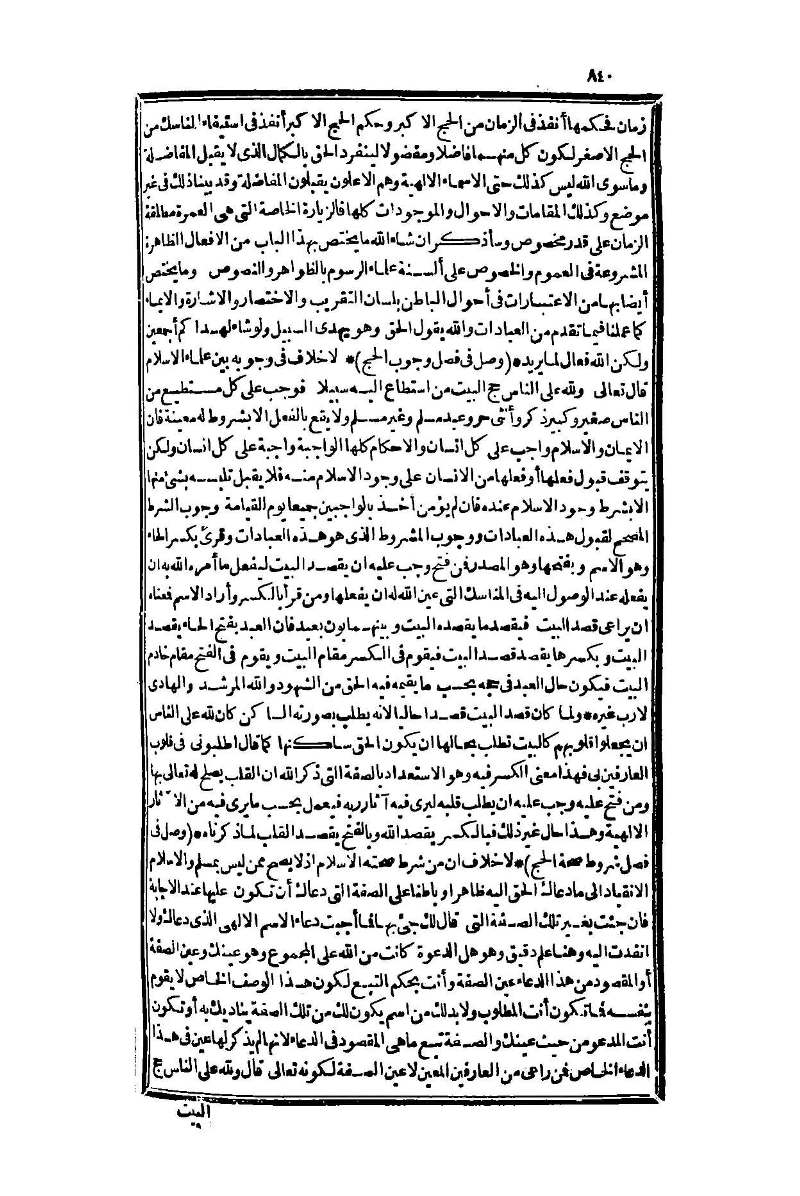 ٨٤٠
زمان فحكمها أنفذ فى الزمان من الحج الاكبر وحكم الحج الاكبر أنفذ فى استيفاء المناسك من
الحج الاصغر لكون كل منهما فاضلا ومفضولا لينفرد الحق بالكمال الذى لا يقبل المفاضلة
وما سوى الله ليس كذلك حتى الاسماء الالهية وهم الاعلون يقبلون المفاضلة وقد بينا ذلك فى غير
موضع وكذلك المقامات والاحوال والموجودات كلها فالزيارة الخاصة التى هى العمرة مطلقة
الزمان على قدر مخصوص وسأذكر ان شاء الله ما يختص بهذا الباب من الافعال الظاهرة
المشروعة فى العموم والخصوص على ألسنة علماء الرسوم بالظواهر والنصوص وما يختص
أيضا بها من الاعتبارات فى أحوال الباطن بلسان التقريب والاختصار والاشارة والايماء
كما عملنا فيما تقدم من العبادات والله يقول الحق وهو يهدى السبيل ولو شاء لهداكم أجمعين
ولكن الله فعال لما يريد *(وصل فى فصل وجوب الحج)* لا خلاف فى وجوبه بين علماء الاسلام
قال تعالى ولله على الناس حج البيت من استطاع اليه سبيلا فوجب على كل مستطيع من
الناس صغير وكبير ذكر وأنثى حر وعبد مسلم وغير مسلم ولا يقع بالفعل الا بشروط له معينة فان
الايمان والاسلام واجب على كل انسان والاحكام كلها الواجبة واجبة على كل انسان ولكن
يتوقف قبول فعلها أو فعلها من الانسان على وجود الاسلام منه فلا يقبل تلبسه بشئ منها
الا بشرط وجود الاسلام عنده فان لم يؤمن أخذ بالواجبين جميعا يوم القيامة وجوب الشرط
المصحح لقبول هذه العبادات ووجوب المشروط الذى هو هذه العبادات وقرئ بكسر الحاء
وهو الاسم وبفتحها وهو المصدر فمن فتح وجب عليه ان يقصد البيت ليفعل ما أمره الله به ان
يفعله عند الوصول اليه فى المناسك التى عين الله له ان يفعلها ومن قرأ بالكسر وأراد الاسم فمعناه
ان يراعى قصد البيت فيقصد ما يقصده البيت وبينهما بون بعيد فان العبد بفتح الحاء يقصد
البيت وبكسرها يقصد قصد البيت فيقوم فى الكسر مقام البيت ويقوم فى الفتح مقام خادم
البيت فيكون حال العبد فى حجه بحسب ما يقيمه فيه الحق من الشهود والله المرشد والهادى
لا رب غيره * ولما كان قصد البيت قصدا حاليا لانه يطلب بصورته الساكن كان لله على الناس
ان يجعلوا قلوبهم كالبيت تطلب بحالها ان يكون الحق ساكنها كما قال اطلبونى فى قلوب
العارفين بى فهذا معنى الكسر فيه وهو الاستعداد بالصفة التى ذكر الله ان القلب يصلح له تعالى بها
ومن فتح عليه وجب عليه ان يطلب قلبه ليرى فيه آثار ربه فيعمل بحسب ما يرى فيه من الآثار
الالهية وهذا حال غير ذلك فبالكسر يقصد الله وبالفتح يقصد القلب لما ذكرناه *(وصل فى
فصل شروط صحة الحج)* لا خلاف ان من شرط صحته الاسلام اذ لا يصح ممن ليس بمسلم والاسلام
الانقياد الى ما دعاك الحق اليه ظاهرا وباطنا على الصفة التى دعاك أن تكون عليها عند الاجابة
فان جئت بغير تلك الصفة التى قال لك جئ بها فما أجبت دعاء الاسم الالهى الذى دعاك ولا
انقدت اليه وهنا علم دقيق وهو هل الدعوة كانت من الله على المجموع وهو عينك وعين الصفة
أو المقصود من هذا الدعاء عين الصفة وأنت بحكم التبع لكون هذا الوصف الخاص لا يقوم
بنفسه فما تكون أنت المطلوب ولا بد لك من اسم يكون لك من تلك الصفة يناديك به أو تكون
أنت المدعو من حيث عينك والصفة تبع ما هى المقصود فى الدعاء لانها لم يذكر لها عين فى هذا
الدعاء الخاص فمن راعى من العارفين المعين لا عين الصفة لكونه تعالى قال ولله على الناس حج
البيت